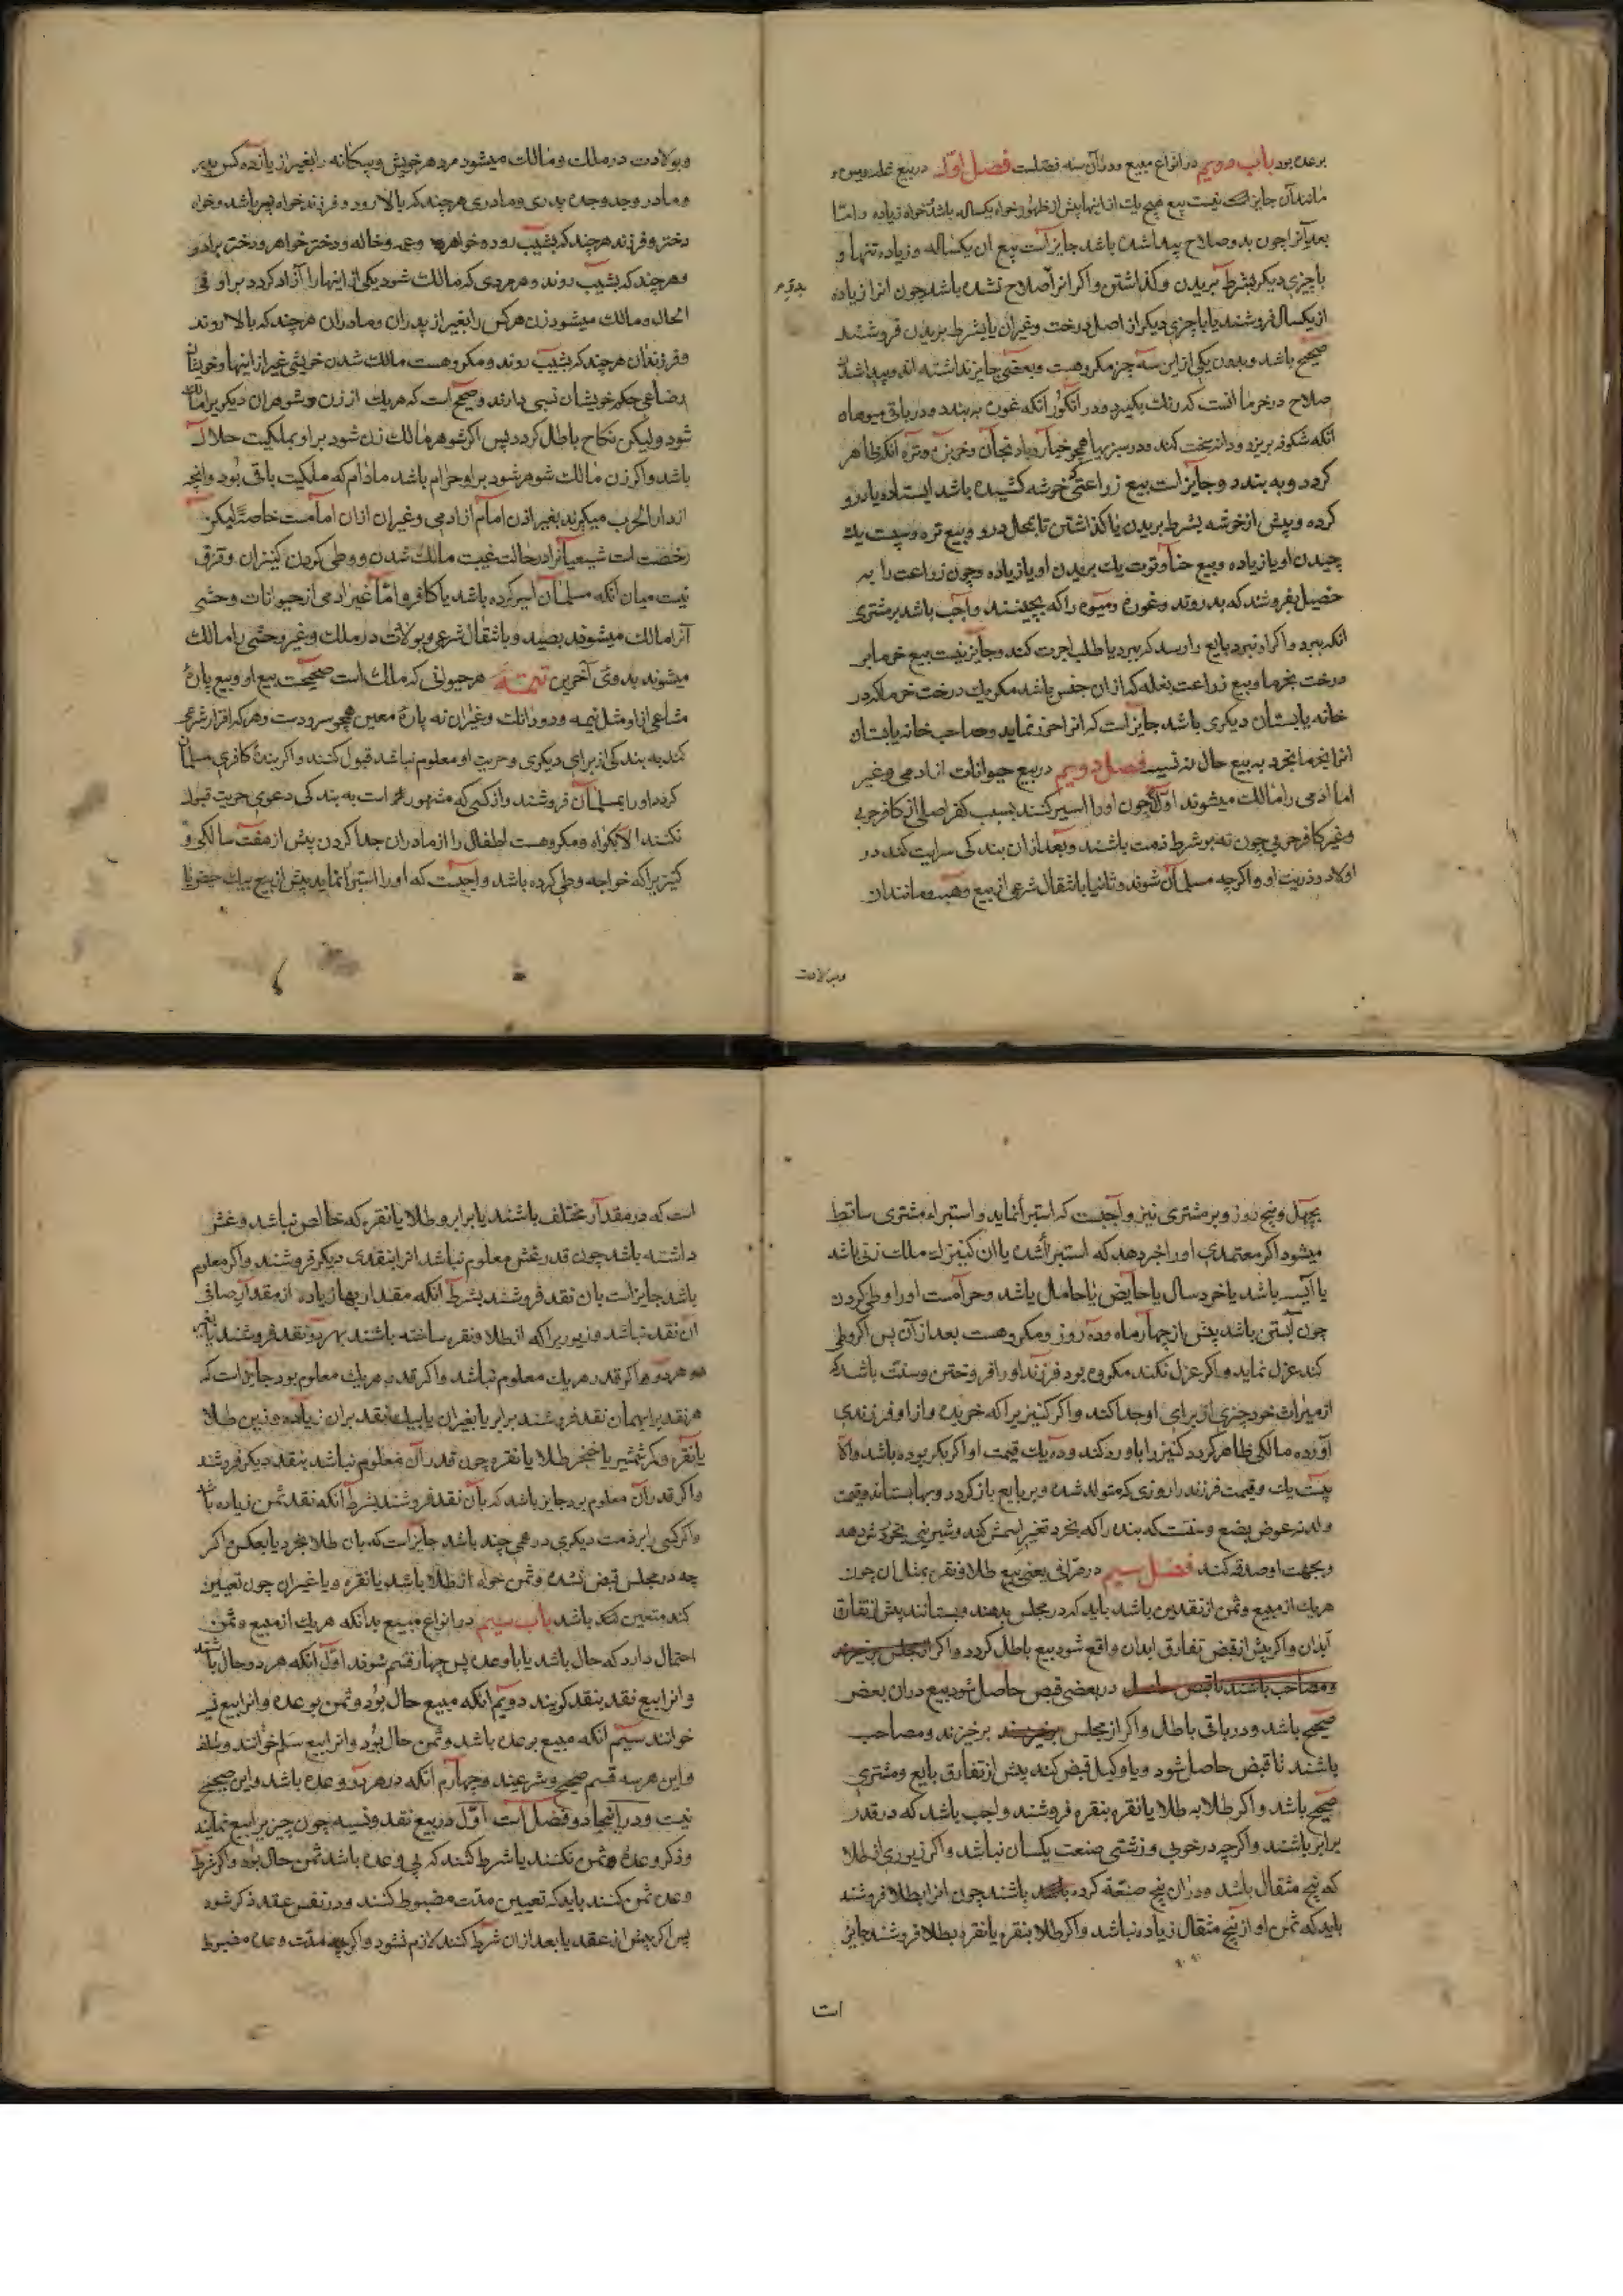 بر عده بود باب دویم در انواع مبیع و در آن سه فصلست فصل اول در بیع غله و میوه و
مانند آن جایز نیست بیع هیچ یک از اینها پیش از ظهور خواه یکساله باشد خواه زیاده و اما
بعد از آن چون بدو صلاح پیدا شده باشد جایز است بیع آن یکساله و زیاده تنها و
با چیزی دیگر بشرط بریدن و گذاشتن و اگر آنرا صلاح نشده باشد چون آنرا زیاده
از یکسال فروشند یا با چیزی دیگر از اصل درخت و غیر آن یا بشرط بریدن فروشند
صحیح باشد و بدون یکی از این سه چیز مکروهست و بعضی جایز نداشته اند و پیدا شدن
صلاح در خرما آنست که رنگ بگیرد و در انگور آنکه غوره به بندد و در باقی میوها
آنکه شکوفه بریزد و دانه سخت کند و در سبزیها همچو خیار و بادنجان و خربزه و تره آنکه ظاهر
گردد و به بندد و جایز است بیع زراعتی که خوشه کشیده باشد ایستاده یا درو
کرده و پیش از خوشه بشرط بریدن یا گذاشتن تا بحال درو و بیع تره و سپست یک
چیدن او یا زیاده و بیع حنا و توت یک بریدن او یا زیاده و چون زراعت را به
حصیل بفروشند که بدروند و غوره و میوه را که بچینند واجب باشد بر مشتری
آنکه ببرد و اگر او نبرد بایع را رسد که ببرد یا طلب اجرت کند و جایز نیست بیع خرما بر
درخت بخرما و بیع زراعت بغله که از آن جنس باشد مگر یک درخت خرما که در
خانه یا بستان دیگری باشد جایز است که آنرا حزر نماید و صاحب خانه یا بستان
آنرا بخرما بخرد به بیع حال نه نسیه فصل دویم در بیع حیوانات از آدمی و غیر
اما آدمی را مالک میشوند اولا چون او را اسیر کنند بسبب کفر اصلی از کافر حربی
و غیر کافر حربی چون نه بر شرط ذمت باشند و بعد از آن بندگی سرایت کند در
اولاد و ذریت او و اگرچه مسلمان شوند و ثانیا بانتقال شرعی از بیع و هبه و مانند آن
و بولادت
و بولادت در ملک و مالک میشود مرد هر خویش و بیگانه را بغیر از یازده کس پدر
و مادر و جد و جده پدری و مادری هر چند که بالا رود و فرزند خواه پسر باشد و خواه
دختر و فرزند هر چند که بشیب رود و خواهر و عمه و خاله و دختر خواهر و دختر برادر
و هر چند که بشیب روند و هر مردی که مالک شود یکی از اینها را آزاد گردد بر او فی
الحال و مالک میشود زن هر کس را بغیر از پدران و مادران هر چند که بالا روند
و فرزندان هر چند که بشیب روند و مکروهست مالک شدن خویشی غیر از اینها و خویشان
رضاعی حکم خویشان نسبی دارند و صحیح است که هر یک از زن و شوهر آن دیگر را مالک
شود ولیکن نکاح باطل گردد پس اگر شوهر مالک زن شود بر او بملکیت حلال
باشد و اگر زن مالک شوهر شود بر او حرام باشد مادام که ملکیت باقی بود و آنچه
از دار الحرب میگیرند بغیر اذن امام از آدمی و غیر آن از آن امامست خاصة لیکن
رخصت است شیعیانرا در حالت غیبت مالک شدن و وطی کردن کنیزان و فرق
نیست میان آنکه مسلمان اسیر کرده باشد یا کافر و اما غیر آدمی از حیوانات وحشی
آنرا مالک میشوند بصید و بانتقال شرعی و بولادت در ملک و غیر وحشی را مالک
میشوند بدو تای آخرین تتمه هر حیوانی که مالک است صحیحست بیع او و بیع پارهٔ
مشاعی از او مثل نیمه و دو دانک و غیر آن نه پارهٔ معین همچو سر و دست و هر که اقرار شرعی
کند به بندگی از برای دیگری و حریت او معلوم نباشد قبول کنند و اگر بندهٔ کافری مسلمان
گردد او را بمسلمان فروشند و از کسی که مشهور است به بندگی دعوی حریت قبول
نکنند الا بگواه و مکروهست اطفال را از مادران جدا کردن پیش از هفت سالگی و
کنیز را که خواجه وطی کرده باشد واجبست که او را استبرا نماید پیش از بیع بیک حیض یا
بچهل و پنج روز و بر مشتری نیز واجبست که استبرا نماید و استبراء مشتری ساقط
میشود اگر معتمدی او را خبر دهد که استبرا شده یا آن کنیز از ملک زنی باشد
یا آیسه باشد یا خرد سال یا حایض یا حامل باشد و حرامست او را وطی کردن
چون آبستن باشد پیش از چهار ماه و ده روز و مکروهست بعد از آن پس اگر وطی
کند عزل نماید و اگر عزل نکند مکروه بود فرزند او را فروختن و سنت باشد که
از میراث خود چیزی از برای او جدا کند و اگر کنیز را که خریده و از او فرزندی
آورده مالکی ظاهر گردد کنیز را باو رد کند و ده یک قیمت او اگر بکر بوده باشد و الا
بیست یک و قیمت فرزند را روزی که متولد شده و بر بایع باز گردد و بها بستاند و قیمت
ولد نه عوض بضع و سنتست که بنده را که بخرد تغیر اسمش کند و شیرینی بخوردش دهد
و بجهت او صدقه کند فصل سیم در صرافی یعنی بیع طلا و نقره بمثل آن چون
هر یک از مبیع و ثمن از نقدین باشد باید که در مجلس بدهند و بستانند پیش از تفارق
ابدان و اگر پیش از قبض تفارق ابدان واقع شود بیع باطل گردد و اگر از مجلس برخیزند
و مصاحب باشند تا قبض حاصل در بعضی قبض حاصل شود بیع در آن بعض
صحیح باشد و در باقی باطل و اگر از مجلس برخیزند برخیزند و مصاحب
باشند تا قبض حاصل شود و یا وکیل قبض کند پیش از تفارق بایع و مشتری
صحیح باشد و اگر طلا به طلا یا نقره بنقره فروشند واجب باشد که در قدر
برابر باشند و اگرچه در خوبی و زشتی صنعت یکسان نباشد و اگر زیوری از طلا
که پنج مثقال باشد و در آن پنج صنعة کرده باشند چون آنرا بطلا فروشند
باید که ثمن او از پنج مثقال زیاده نباشد و اگر طلا بنقره یا نقره بطلا فروشند جایز
است
است که در مقدار مختلف باشند یا برابر و طلا یا نقره که خالص نباشد و غش
داشته باشد چون قدر غش معلوم نباشد آنرا بنقدی دیگر فروشند و اگر معلوم
باشد جایز است بآن نقد فروشند بشرط آنکه مقدار بها زیاده از مقدار صافی
آن نقد نباشد و زیوریرا که از طلا و نقره ساخته باشند بهر دو نقد فروشند
هر دو اگر قدر هر یک معلوم نباشد و اگر قدر هر یک معلوم بود جایز است که
هر نقد بهمان نقد فروشند برابر یا بغیر آن زیاده و زین طلا
یا نقره و کمر شمشیر یا خنجر طلا یا نقره چون قدر آن معلوم نباشد بنقد دیگر فروشند
و اگر قدر آن معلوم بود جایز باشد که بآن نقد فروشند بشرط آنکه نقد ثمن زیاده باشد
و اگر کسی را بر ذمت دیگری درهمی چند باشد جایز است که بآن طلا بخرد یا بعکس و اگر
چه در مجلس قبض نشده و ثمن خواه از طلا باشد یا نقره و یا غیر آن چون تعیین
کند متعین باشد باب سیم در انواع مبیع بدانکه هر یک از مبیع و ثمن
احتمال دارد که حال باشد یا با وعده پس چهار قسم شوند اول آنکه هر دو حال باشند
و آنرا بیع نقد بنقد گویند دویم آنکه مبیع حال بود و ثمن بوعده و آنرا بیع نسیه
خوانند سیم آنکه مبیع بر عده باشد و ثمن حال بود و آنرا بیع سلم خوانند و سلف
و این هر سه قسم صحیح و شرعیند و چهارم آنکه در هر دو وعده باشد و این صحیح
نیست و در اینجا دو فصل است اول در بیع نقد و نسیه چون چیزیرا بیع نمایند
و ذکر وعدهٔ ثمن نکنند یا شرط کنند که بی وعده باشد ثمن حال بود و اگر شرط
وعده ثمن کنند باید که تعیین مدت مضبوط کنند و در نفس عقد ذکر شود
پس اگر پیش از عقد یا بعد از آن شرط کنند لازم نشود و اگر چه مدت وعده مضبوط